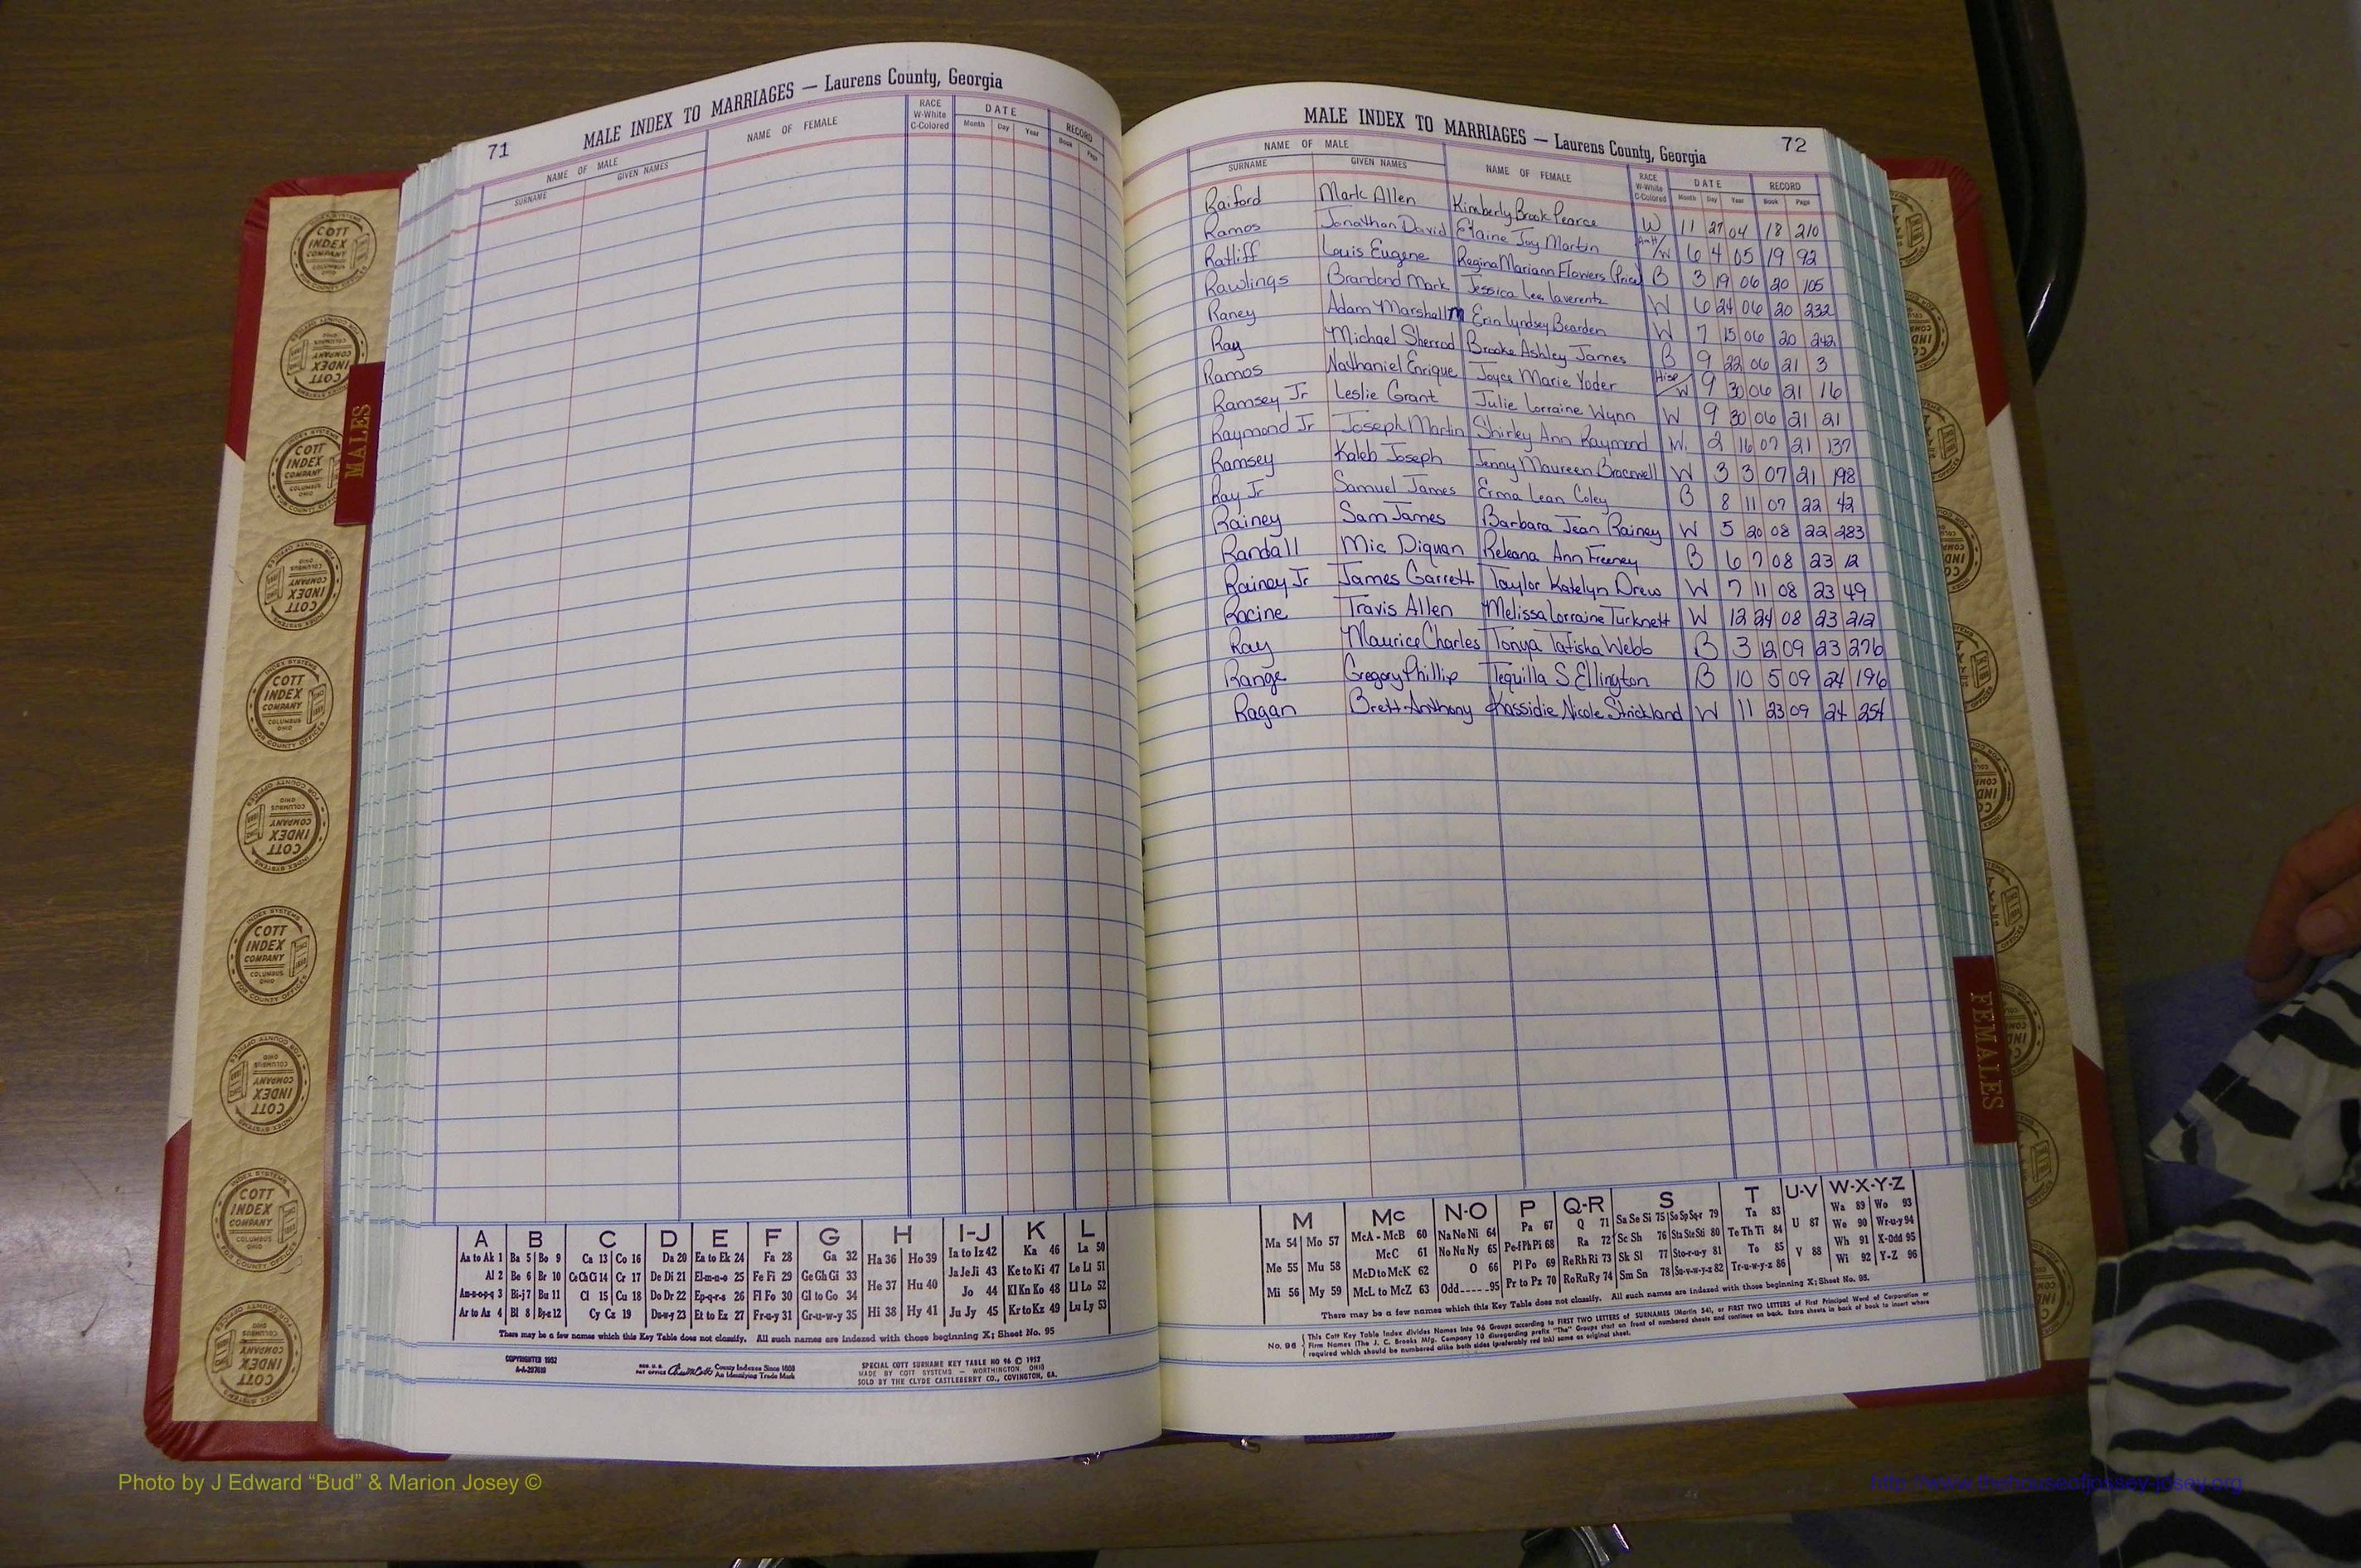 71
MALE INDEX TO MARRIAGES — Laurens County, Georgia
NAME OF MALE
SURNAME GIVEN NAMES
NAME OF FEMALE
RACE
W-White
C-Colored
DATE
Month Day Year
RECORD
Book Page
MALE INDEX TO MARRIAGES — Laurens County, Georgia
72
NAME OF MALE
SURNAME GIVEN NAMES
NAME OF FEMALE
RACE
W-White
C-Colored
DATE
Month Day Year
RECORD
Book Page
Raiford Mark Allen Kimberly Brook Pearce W 11 27 04 18 210
Ramos Jonathan David Elaine Joy Martin /W 6 4 05 19 92
Ratliff Louis Eugene Regina Mariann Flowers (Price) B 3 19 06 20 105
Rawlings Brandond Mark Jessica Lea Laverentz W 6 24 06 20 232
Raney Adam Marshall M Erin Lyndsey Bearden W 7 15 06 20 242
Ray Michael Sherrod Brooke Ashley James B 9 22 06 21 3
Ramos Nathaniel Enrique Joyce Marie Yoder Hisp/W 9 30 06 21 16
Ramsey Jr Leslie Grant Julie Lorraine Wynn W 9 30 06 21 21
Raymond Jr Joseph Martin Shirley Ann Raymond W. 2 16 07 21 137
Ramsey Kaleb Joseph Jenny Maureen W 3 3 07 21 198
Ray Jr Samuel James Erma Lean Coley B 8 11 07 22 42
Rainey Sam James Barbara Jean Rainey W 5 20 08 22 283
Randall Mic Diquan Ann Freeney B 6 7 08 23 12
Rainey Jr James Garrett Taylor Katelyn Drew W 7 11 08 23 49
Racine Travis Allen Melissa Lorraine Turknett W 12 24 08 23 212
Ray Maurice Charles Tonya Tatisha Webb B 3 12 09 23 276
Range Gregory Phillip Tequilla S Ellington B 10 5 09 24 196
Ragan Brett Anthony Kassidie Nicole Strickland W 11 23 09 24 254
MALES
FEMALES
COTT INDEX COMPANY
COLUMBUS OHIO
INDEX SYSTEMS
FOR COUNTY OFFICES
A B C D E F G H I-J K L
Aa to Ak 1 Ba 5 Bo 9 Ca 13 Co 16 Da 20 Ea to Ek 24 Fa 28 Ga 32 Ha 36 Ho 39 Ia to Iz 42 Ka 46 La 50
Al 2 Be 6 Br 10 Ce Ch Ci 14 Cr 17 De Di 21 El-m-n-o 25 Fe Fi 29 Ge Gh Gi 33 He 37 Hu 40 Ja Je Ji 43 Ke to Ki 47 Le Li 51
An-o-p-q 3 Bi-j 7 Bu 11 Cl 15 Cu 18 Do Dr 22 Ep-q-r-s 26 Fl Fo 30 Gl to Go 34 Hi 38 Hy 41 Jo 44 Kl Kn Ko 48 Ll Lo 52
Ar to Az 4 Bl 8 By-z 12 Cy Cz 19 Du-w-y 23 Et to Ez 27 Fr-u-y 31 Gr-u-w-y 35 Ju Jy 45 Kr to Kz 49 Lu Ly 53
There may be a few names which this Key Table does not classify. All such names are indexed with those beginning X; Sheet No. 95
COPYRIGHTED 1952
County Indexes Since 1888
An Identifying Trade Mark
SPECIAL COTT SURNAME KEY TABLE NO 96 © 1952
MADE BY COTT SYSTEMS — WORTHINGTON, OHIO
SOLD BY THE CLYDE CASTLEBERRY CO., COVINGTON, GA.
M Mc N-O P Q-R S T U-V W-X-Y-Z
Ma 54 Mo 57 McA - McB 60 Na Ne Ni 64 Pa 67 Q 71 Sa Se Si 75 So Sp Sq-r 79 Ta 83 U 87 Wa 89 Wo 93
Me 55 Mu 58 McC 61 No Nu Ny 65 Pe-f Ph Pi 68 Ra 72 Sc Sh 76 Sta Ste Sti 80 Te Th Ti 84 V 88 We 90 Wr-u-y 94
Mi 56 My 59 McD to McK 62 O 66 Pl Po 69 Re Rh Ri 73 Sk Sl 77 Sto-r-u-y 81 To 85 Wh 91 X-Odd 95
McL to McZ 63 Odd 95 Pr to Pz 70 Ro Ru Ry 74 Sm Sn 78 Su-v-w-y-z 82 Tr-u-w-y-z 86 Wi 92 Y-Z 96
There may be a few names which this Key Table does not classify. All such names are indexed with those beginning X; Sheet No. 95.
No. 96 This Cott Key Table Index divides Names into 96 Groups according to FIRST TWO LETTERS of SURNAMES (Martin 54), or FIRST TWO LETTERS of First Principal Word of Corporation or
Firm Names (The J. C. Brooks Mfg. Company 10 disregarding prefix "The" Groups start on front of numbered sheets and continue on back. Extra sheets in back of book to insert where
required which should be numbered alike both sides (preferably red ink) same as original sheet.
Photo by J Edward “Bud” & Marion Josey ©
http://www.thehouseofjossey-josey.org